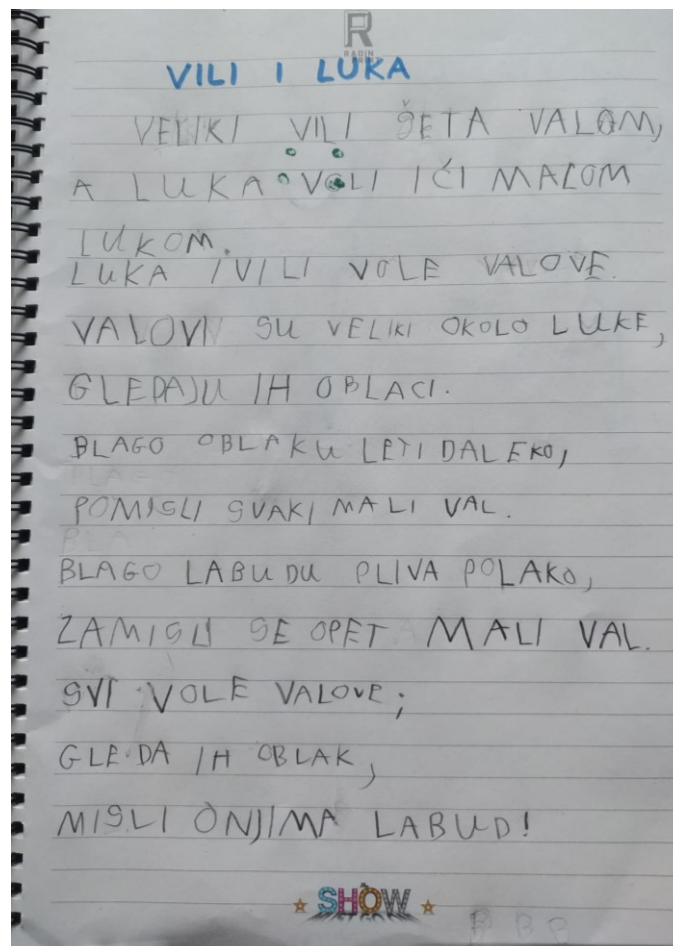 RADIN
VILI I LUKA
VELIKI VILI ŠETA VALOM,
A LUKA VOLI IĆI MALOM
LUKOM.
LUKA I VILI VOLE VALOVE.
VALOVI SU VELIKI OKOLO LUKE,
GLEDAJU IH OBLACI.
BLAGO OBLAKU LETI DALEKO,
POMISLI SVAKI MALI VAL.
BLAGO LABUDU PLIVA POLAKO,
ZAMISLI SE OPET MALI VAL.
SVI VOLE VALOVE;
GLEDA IH OBLAK,
MISLI O NJIMA LABUD!
SHOW
B B B